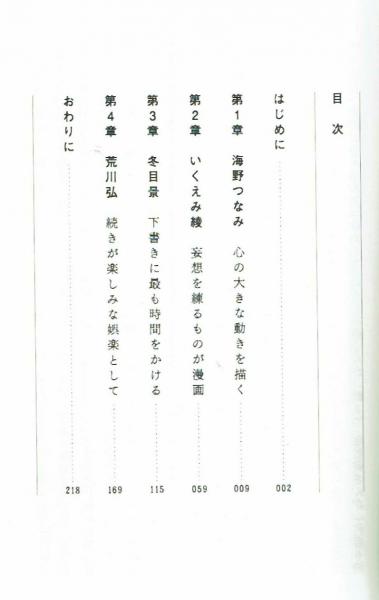 目次
はじめに 002
第1章 海野つなみ 心の大きな動きを描く 009
第2章 いくえみ綾 妄想を練るものが漫画 059
第3章 冬目景 下書きに最も時間をかける 115
第4章 荒川弘 続きが楽しみな娯楽として 169
おわりに 218